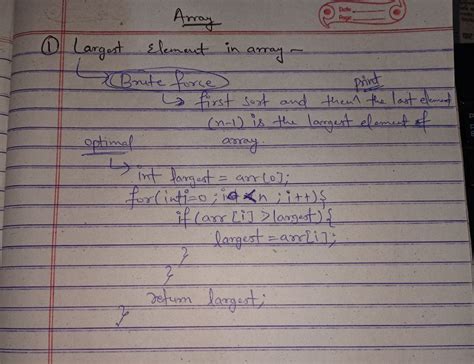 Array
Date
Page
① Largest Element in array -
Brute force
print
first sort and then the last element
(n-1) is the largest element of
array.
optimal
int largest = arr[0];
for(int i=0; i<n; i++){
if (arr[i] > largest) {
largest = arr[i];
}
}
return largest;
}